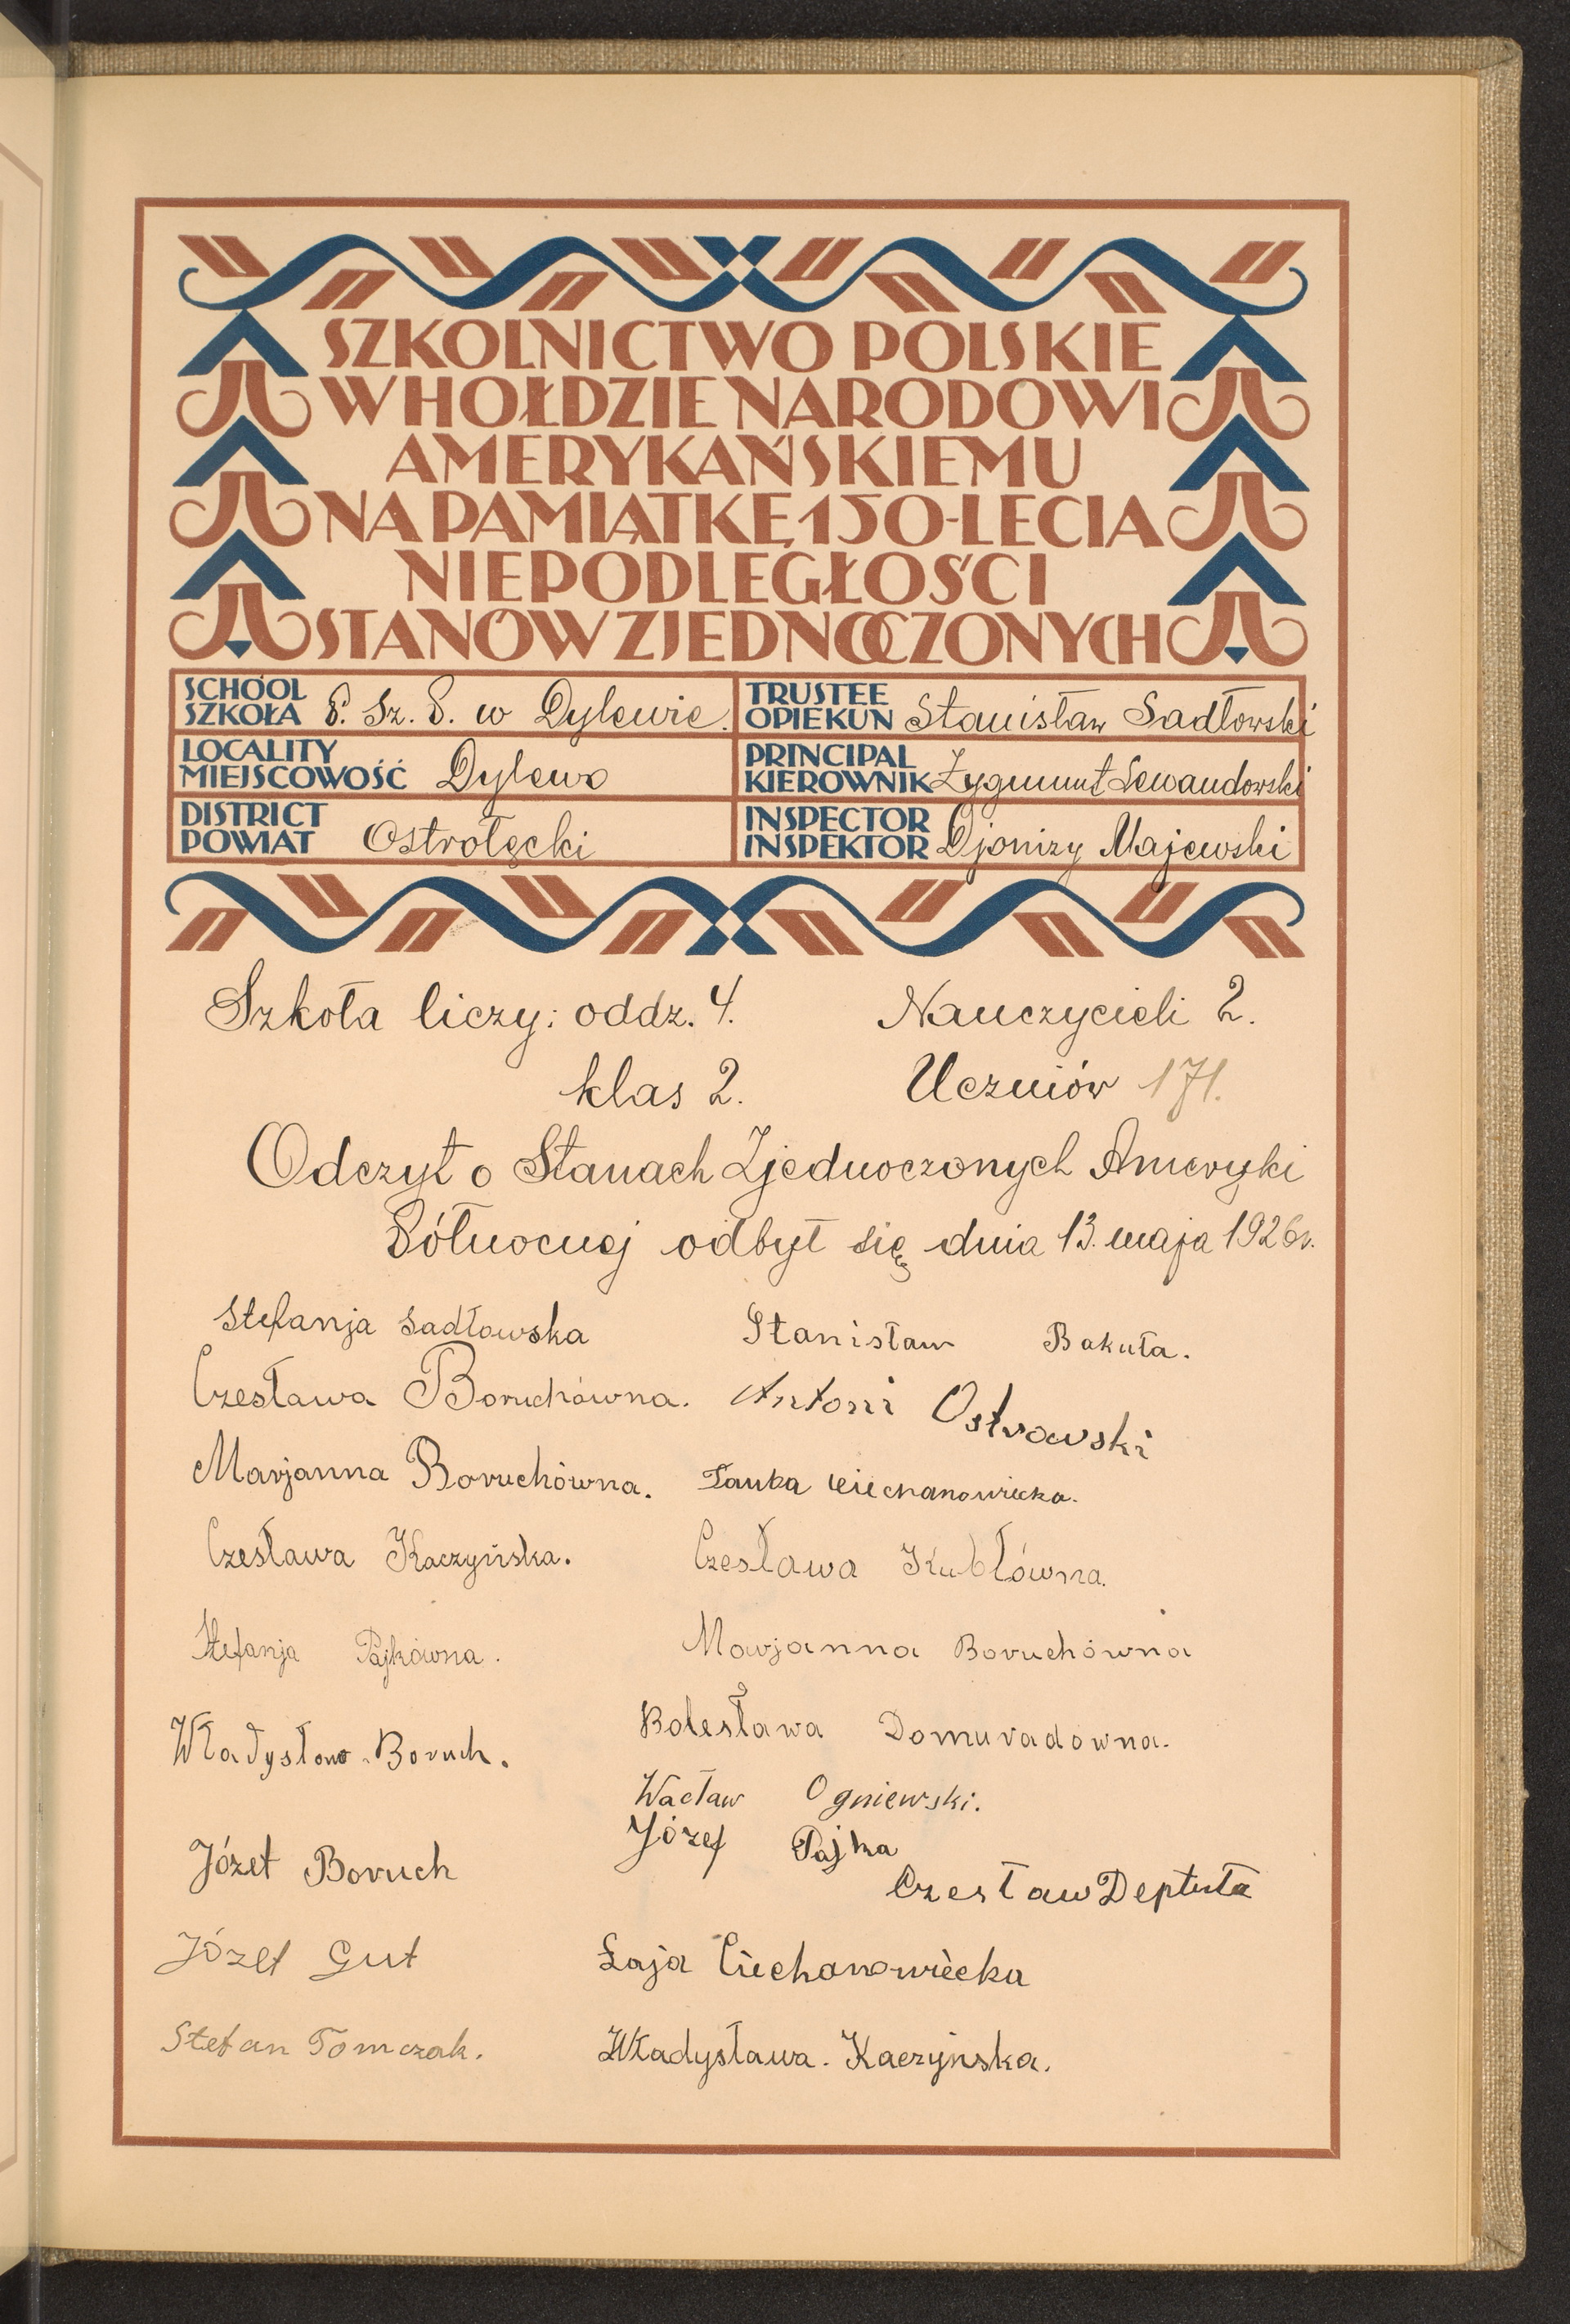 SZKOLNICTWO POLSKIE
W HOŁDZIE NARODOWI
AMERYKAŃSKIEMU
NA PAMIĄTKĘ 150-LECIA
NIEPODLEGŁOŚCI
STANÓW ZJEDNOCZONYCH
SCHOOL
SZKOŁA P. Sz. P. w Dylewie.
TRUSTEE
OPIEKUN Stanisław Sadłowski
LOCALITY
MIEJSCOWOŚĆ Dylewo
PRINCIPAL
KIEROWNIK Zygmunt Lewandowski
DISTRICT
POWIAT Ostrołęcki
INSPECTOR
INSPEKTOR Djonizy Majewski
Szkoła liczy: oddz. 4. Nauczycieli 2.
klas 2. Uczniów 171.
Odczyt o Stanach Zjednoczonych Ameryki
Północnej odbył się dnia 13. maja 1926 r.
Stefanja Sadłowska Stanisław Bakuła.
Czesława Boruchówna. Antoni Ostrowski
Marjanna Boruchówna. Tauba Ciechanowiecka.
Czesława Kaczyńska. Czesława Kubłówna.
Stefanja Pajkówna. Marjanna Boruchówna
Władysława Boruch. Bolesława Domuradowna.
Wacław Ogniewski.
Józef Pajka
Józef Boruch
Czesław Deptuła
Józef Gut Łaja Ciechanowiecka
Stefan Tomczak. Władysława. Kaczyńska.